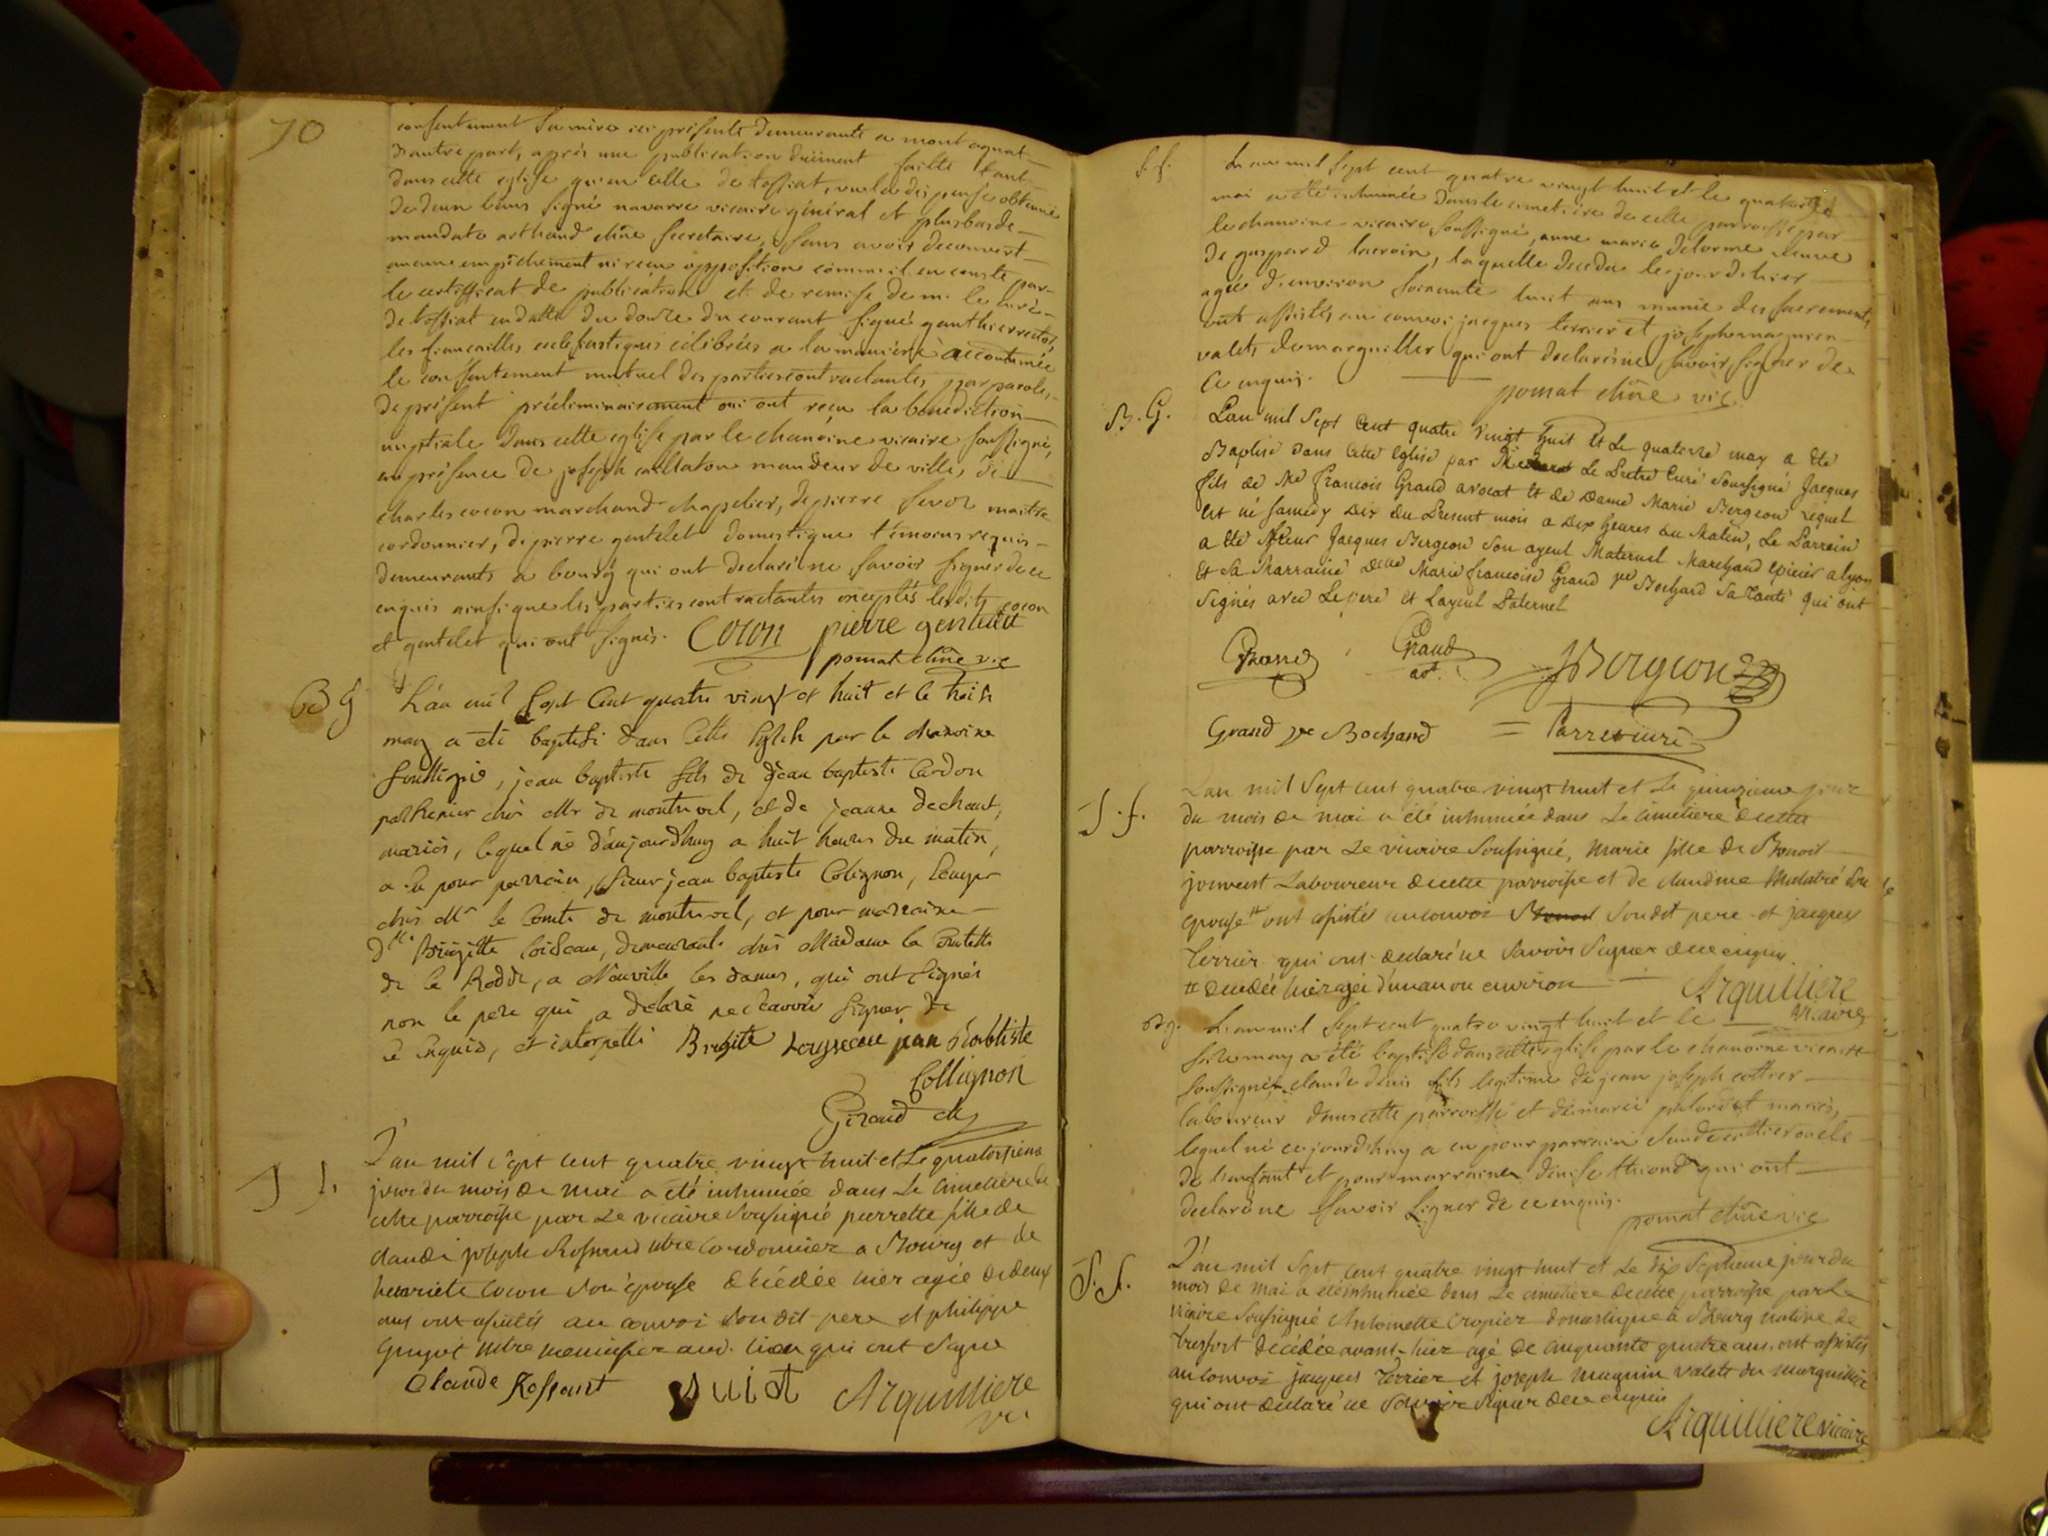 70
consentement sa mire ici présente demeurante a montagnat
d'autre part, après une publication düement faitte tant
dans cette eglise qu'en celle de tossiat, vu la dispense obtenue
de deux bans signé navarre vicaire général et plus bas de
mandato arthaud chne secretaire, sans avoir decouvert
aucun empêchement ni reçu opposition comme il en conste par
le certifficat de publication et de remise de m. le curé
de tossiat en datte du douze du courant signé gauthier rector,
les fiancailles eclesiastiques célébrées a la manière accoutumée
le consentement mutuel des parties contractantes par paroles
de présent préliminairement oui ont reçu la bénédiction
nuptiale dans cette eglise par le chanoine vicaire soussigné,
en présence de joseph caillaton mandeur de ville, de
charles cocon marchand chapelier, de pierre fevoz maitre
cordonnier, de pierre gentelet domestique temoins requis
demeurants a bourg qui ont declaré ne savoir signer de ce
enquis ainsi que les parties contractantes exceptés lesdits cocon
et gentelet qui ont signés. Cocon pierre gentelet
pomat chne vic
B g
L'an mil sept cent quatre vingt et huit et le treize
may a été baptisé dans cette Eglise par le chanoine
soussigné, jean baptiste fils de jean baptiste Cardon
palfrenier chés Mr de montrevel, et de jeanne dechaut,
mariés, lequel né d'aujourdhuy a huit heures du matin,
a eu pour parrain, sieur jean baptiste Colignon,
chés Mr le Comte de montrevel, et pour marraine
Dlle Brigitte Loiseau, demeurante chés Madame la Comtesse
de la Rodde, a Neuville les dames, qui ont signés
non le pere qui a declaré ne scavoir signer de
ce enquis, et interpellé Brigite Loysseau jean Babtiste
Collignon
Giraud ch
S f.
L'an mil sept cent quatre vingt huit et le quatorzieme
jour du mois de mai a été inhumée dans le cimetiere de
cette parroisse par le vicaire soussigné pierrette fille de
claude joseph Rossand mtre cordonnier a Bourg et de
henriete Cocon son épouse décédée hier agée de deux
ans ont assistés au convoi son dit pere et philippe
Guyot mtre menuisier aud. lieu qui ont signe
Claude Rossant Arquilliere
vic
S. f.
L'an mil sept cent quatre vingt huit et le quatorze
mai a été inhumée dans le cimetière de cette parroisse par
le chanoine vicaire soussigné, anne marie delorme veuve
de gaspard lacroix, laquelle decedée le jour d'hier
agée d'environ soixante huit ans munie des sacrements
ont assistés au convoi jacques terrier et joseph magnien
valets de marguiller qui ont declaré ne savoir signer de
ce enquis. pomat chne vic
B. G.
L'an mil sept cent quatre vingt huit et le quatorze may a été
Baptisé dans cette eglise par le Prêtre Curé soussigné Jacques
fils de Me françois Grand avocat et de dame Marie Bergeon lequel
est né samedy dix du present mois a dix heures du matin, Le Parrain
a été sieur Jacques Bergeon son ayeul Maternel Marchand épicier a lyon
et sa Marraine Delle Marie françoise Grand fe Bochard sa Tante qui ont
signés avec le pere et l'ayeul Paternel
Grand Grand JBergeon
Grand fe Bochard = Carre curé
S. f.
L'an mil sept cent quatre vingt huit et le quinzieme jour
du mois de mai a été inhumée dans le cimetiere de cette
parroisse par le vicaire soussigné, marie fille de Benoit
jonvent laboureur de cette parroisse et de claudine Malatré son
epouse # ont assistés au convoi son dit pere et jacques
Terrier qui ont declaré ne savoir signer de ce enquis
# decedée hier agée d'un an ou environ Arquilliere
vicaire
B g.
L'an mil sept cent quatre vingt huit et le
seize may a été baptisé dans cette eglise par le chanoine vicaire
soussigné, claude denis fils legitime de jean joseph cottier
laboureur dans cette parroisse et de marie mariés,
lequel né ce jourdhuy a eu pour parrain claude cottier oncle
de l'enfant et pour marraine denise qui ont
declaré ne savoir signer de ce enquis.
pomat chne vic
S. S.
L'an mil sept cent quatre vingt huit et le dix septieme jour du
mois de mai a été inhumée dans le cimetiere de cette parroisse par le
vicaire soussigné Antoinette cropier domestique à Bourg native de
Treffort décédée avant-hier agé de cinquante quatre ans. ont assistés
au convoi jacques Terrier et joseph magnin valets du marguillier
qui ont declaré ne savoir signer de ce enquis
Arquilliere vicaire